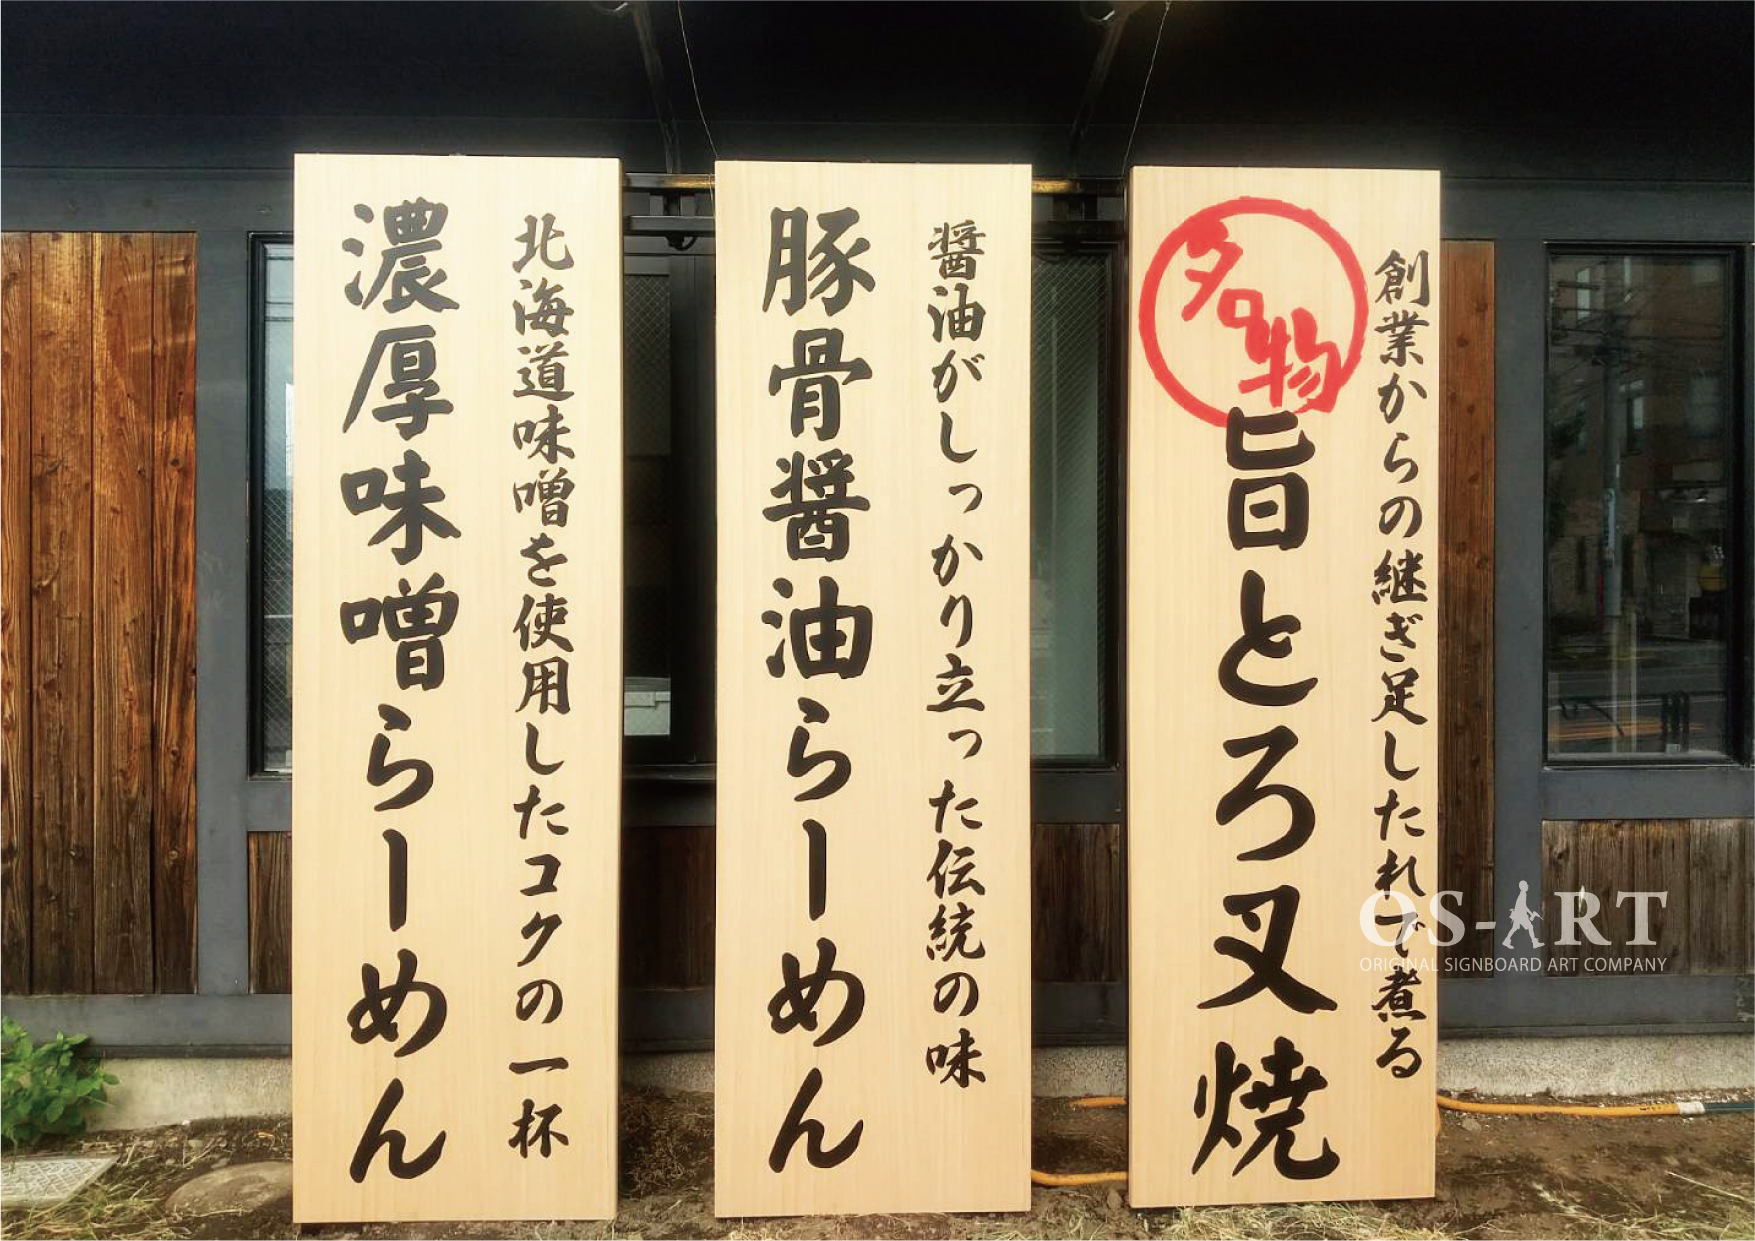 創業からの継ぎ足したれで煮る
名物
旨とろ叉焼
醤油がしっかり立った伝統の味
豚骨醤油らーめん
北海道味噌を使用したコクの一杯
濃厚味噌らーめん
OS-ART
ORIGINAL SIGNBOARD ART COMPANY